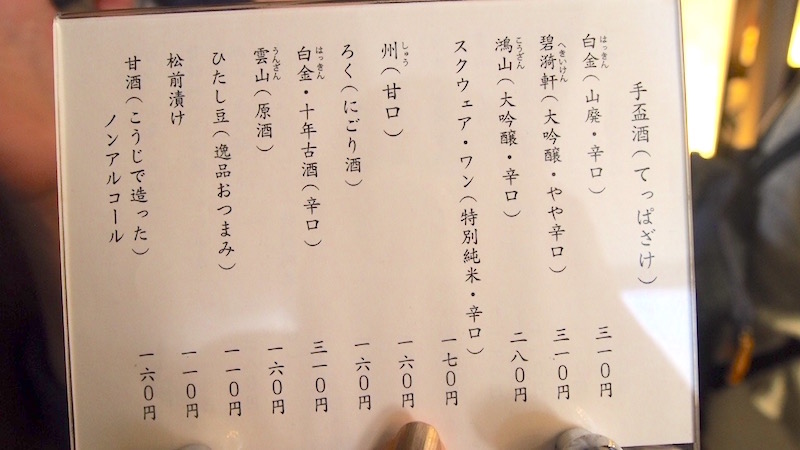 手盃酒(てっぱざけ)
白金(山廃・辛口) 三一〇円
はっきん
碧漪軒(大吟醸・やや辛口) 三一〇円
へきいけん
鴻山(大吟醸・辛口) 二八〇円
こうざん
スクウェア・ワン(特別純米・辛口) 一七〇円
州(甘口) 一六〇円
しゅう
ろく(にごり酒) 一六〇円
白金・十年古酒(辛口) 三一〇円
はっきん
雲山(原酒) 一六〇円
うんざん
ひたし豆(逸品おつまみ) 一一〇円
松前漬け 一一〇円
甘酒(こうじで造った) 一六〇円
ノンアルコール